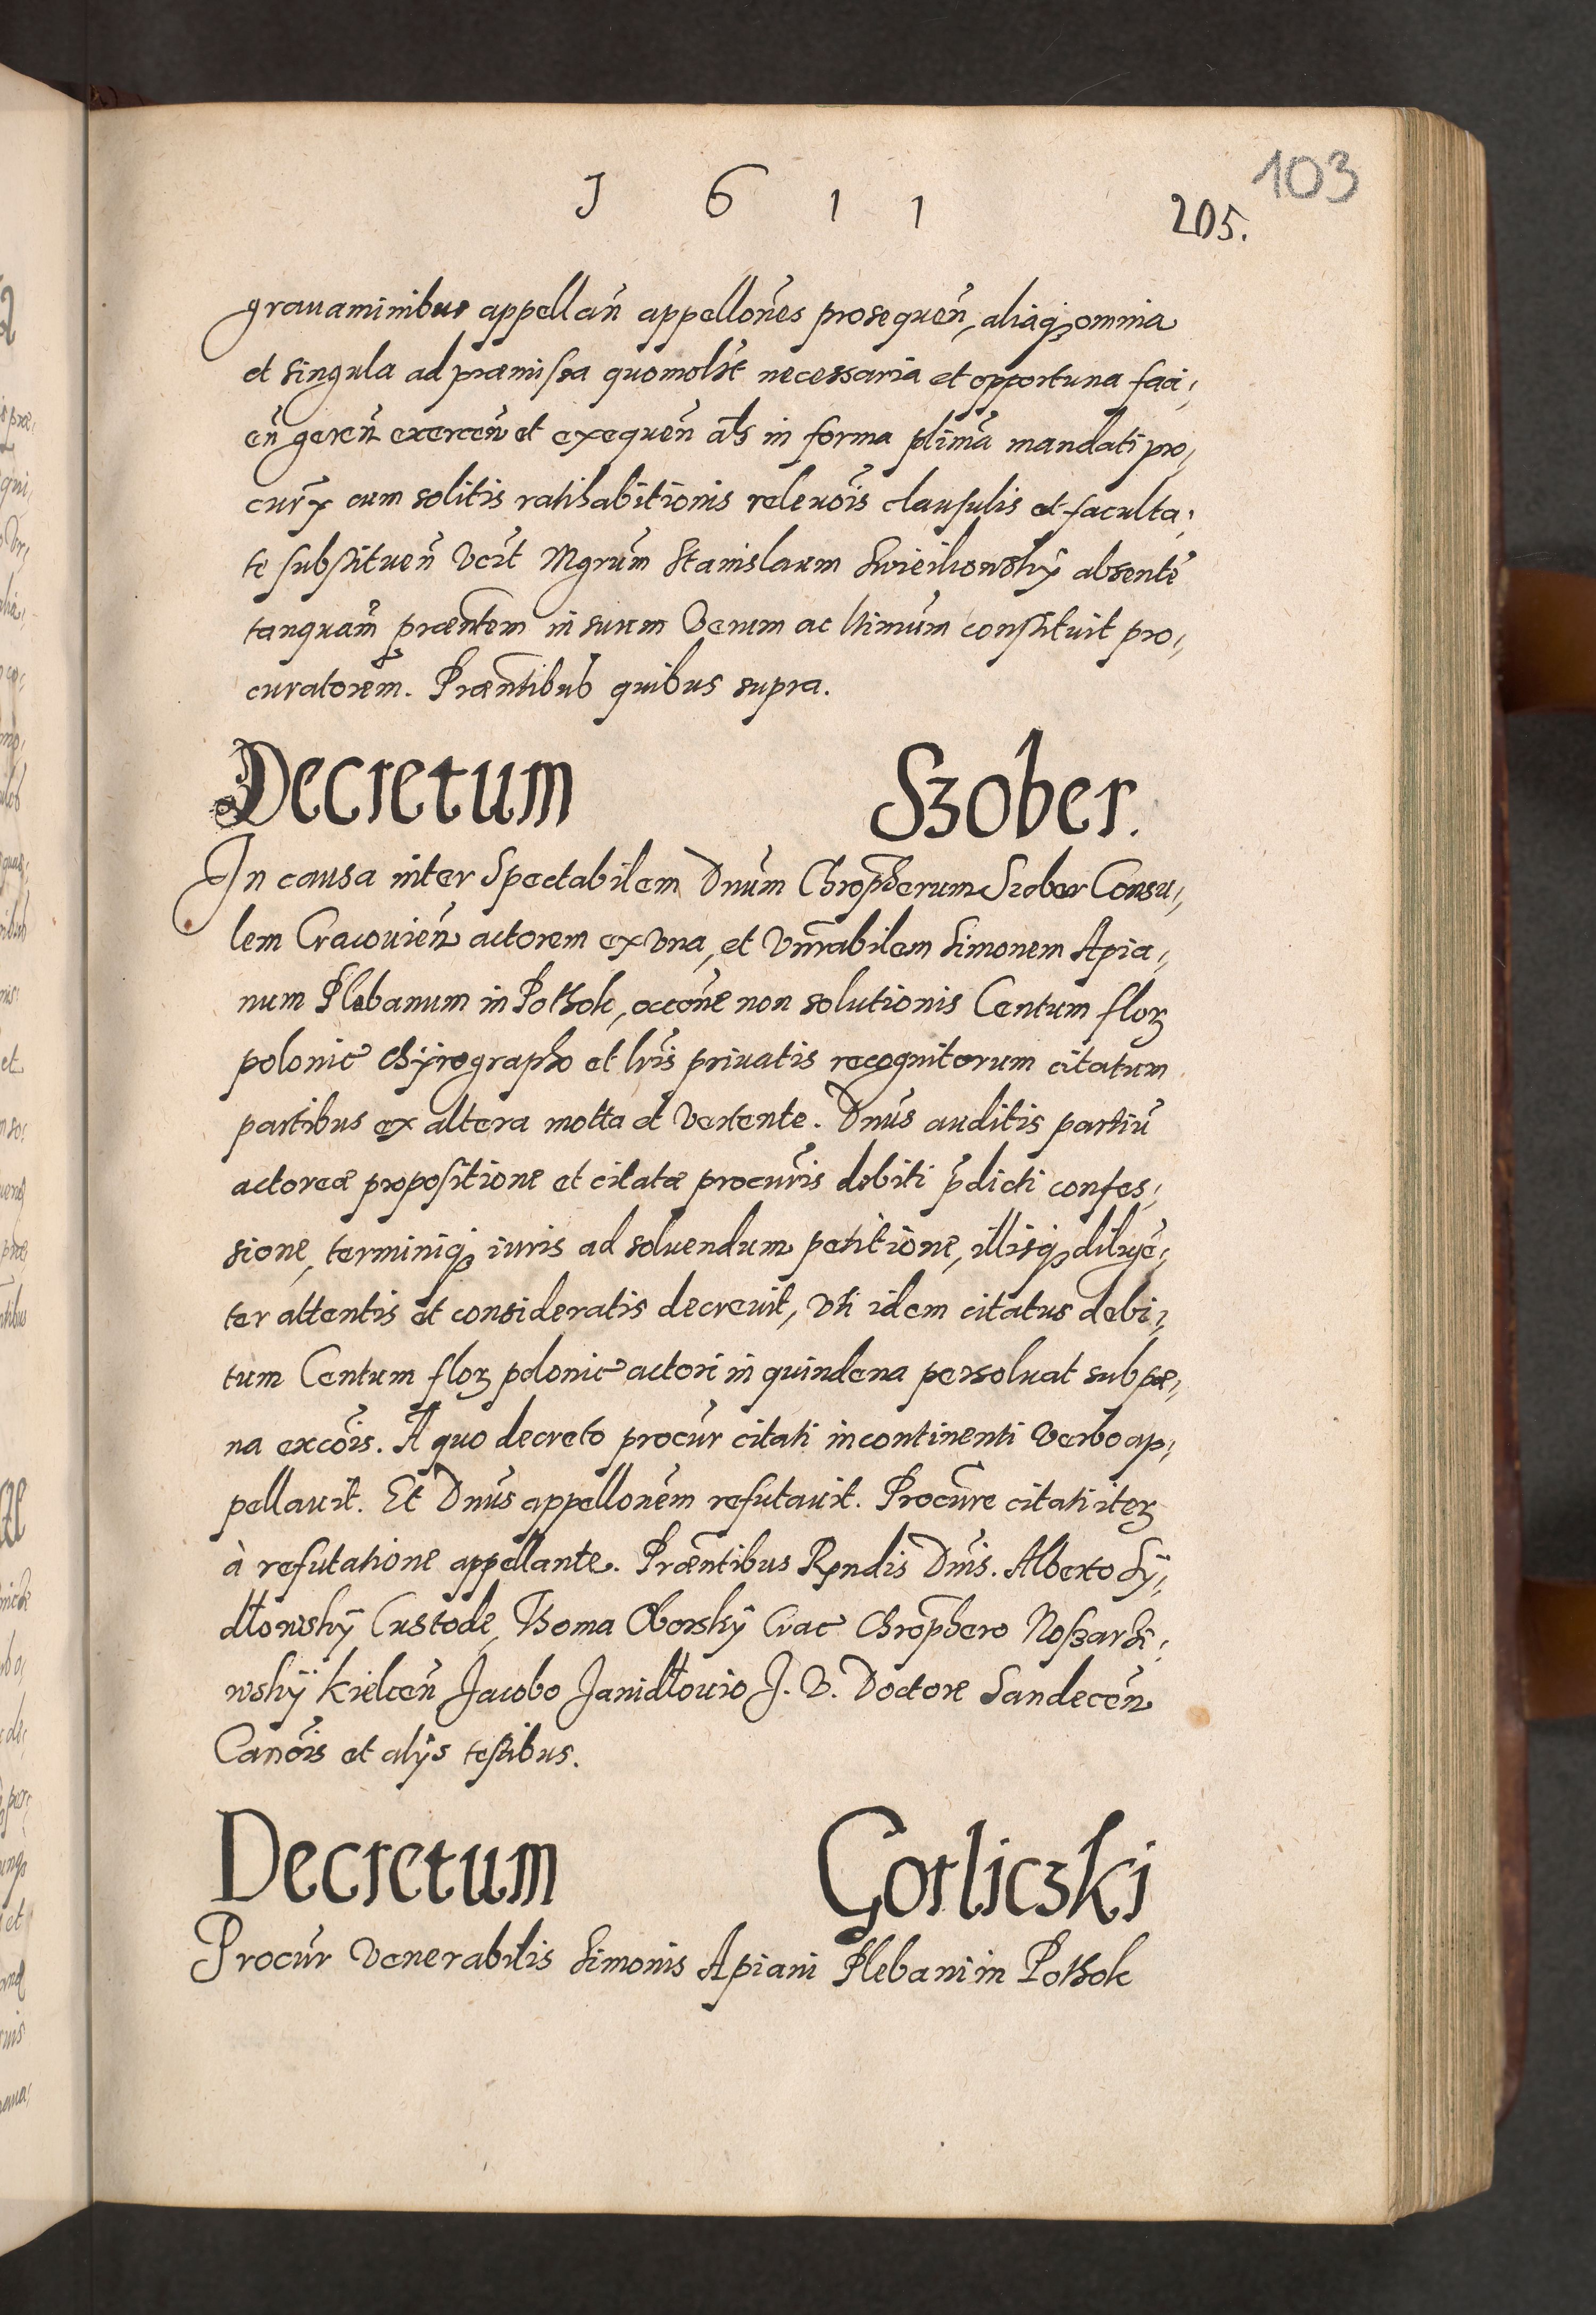 103
1611
205.
grauaminibus appellan̄ appellon̄es prosequen̄, aliaqꝫ omnia
et singula ad præmissa quomolt̄ necessaria et opportuna faci,
en̄ geren̄ exercen̄ et exequen̄ al̄s in forma plīma mandati pro,
cur̄ cum solitis ratihabitionis releuōis clausulis et faculta,
te substituen̄ Mgrum̄ Stanislaum absente̅
tanquam̄ præn̄tem in suum Verum ac ltimūm constituit pro,
curatorem̄. Præn̄tibus quibus supra.
Decretum Szober.
In causa inter Spectabilem Dnūm Chrop̄herum Szober Consu,
lem Cracouien̄ actorem ex vna, et Vnr̄abilem Simonem Apia,
num Plebanum in Pothok, occōne non solutionis Centum florꝫ
polonic chyrographo et lrīs priuatis recognitorum citatum
partibus ex altera motta et Vertente. Dnūs auditis partiū
actoreæ propositione et citatæ procurīs debiti p̄dicti confes,
sione, terminiqꝫ iuris ad soluendum petitione, illisqꝫ diligē,
ter attentis et consideratis decreuit, vti idem citatus debi,
tum Centum florꝫ polonic actori in quindena persoluat sub pæ,
na excōis. A quo decreto procūr citati incontinenti verbo ap,
pellauit. Et Dnūs appellonēm refutauit. Procūre citati iterꝫ
à refutatione appellante. Præn̄tibus Rndis Dnīs. Alberto Sÿ,
dłowskÿ Custode, Thoma Oborskÿ Crac Chrop̄hero Noszarhi,
wskÿ Kielcen̄ Jacobo Janidłouio J. V. Doctore Sandecen̄
Canōis et alÿs testibus.
Decretum Gorliczki
Procūr Venerabilis Simonis Apiani Plebani in Pothok